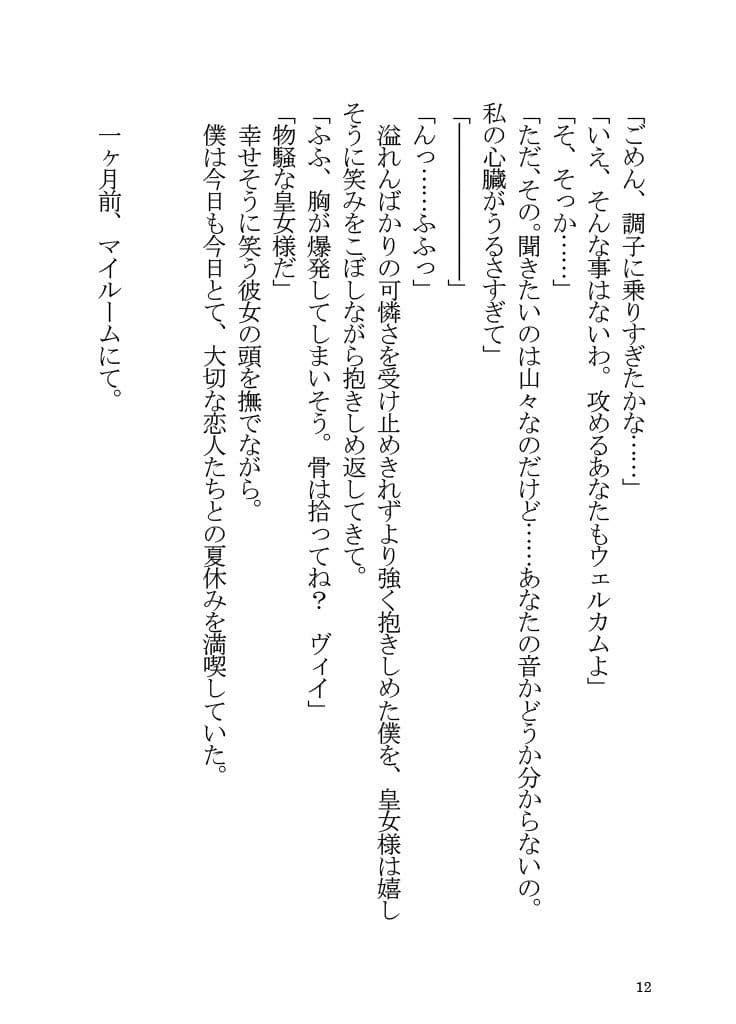 「ごめん、調子に乗りすぎたかな……」
「いえ、そんな事はないわ。攻めるあなたもウェルカムよ」
「そ、そっか……」
「ただ、その。聞きたいのは山々なのだけど……あなたの音かどうか分からないの。
私の心臓がうるさすぎて」
「――――――」
「んっ……ふふっ」
　溢れんばかりの可憐さを受け止めきれずより強く抱きしめた僕を、皇女様は嬉し
そうに笑みをこぼしながら抱きしめ返してきて。
「ふふ、胸が爆発してしまいそう。骨は拾ってね？　ヴィイ」
「物騒な皇女様だ」
　幸せそうに笑う彼女の頭を撫でながら。
　僕は今日も今日とて、大切な恋人たちとの夏休みを満喫していた。
　一ヶ月前、マイルームにて。
12